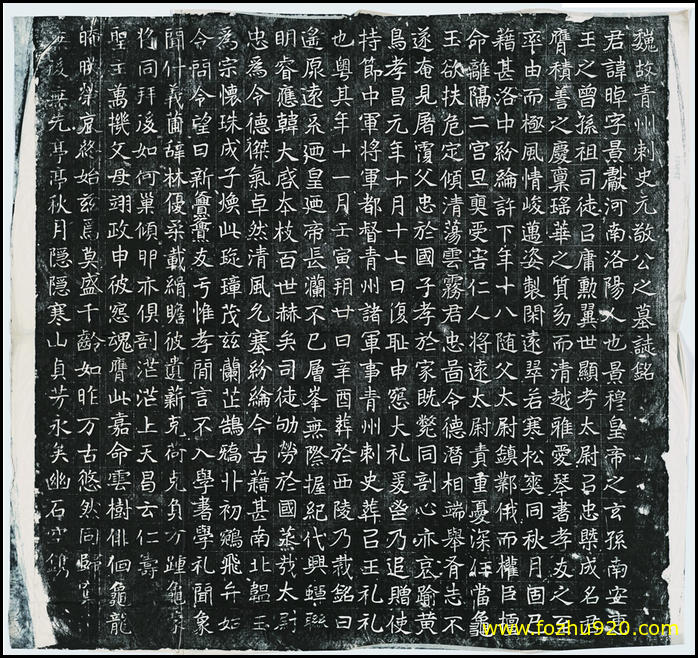 魏故青州刺史元敬公之墓誌銘
君諱晫字景獻河南洛陽人也景穆皇帝之玄孫南安惠
王之曾孫祖司徒召庸勲翼世顯考太尉召忠槩成名君
膺積善之慶稟瑤華之質芴而清越雅愛琴書孝友之至
率由而極風情峻邁姿製閑遠翠若寒松奕同秋月固乃
藉甚洛中紛綸許下年十八随父太尉鎮鄴俄而權臣擅
命離隔二宮旦奭受害仁人將遠太尉責重憂深任當龜
玉欲扶危定傾清蕩雲霧君忠啚令德潜相端舉斉志不
遂奄見屠覆父忠於國子孝於家既斃同剖心亦哀踰黃
鳥孝昌元年十月十七日復耻申怨大礼爰啓乃追贈使
持節中軍將軍都督青州諸軍事青州刺史葬召王礼礼
也粵其年十一月壬寅朔廿日辛酉葬於西陵乃裁銘曰
遙原遠系廼皇廼帝長瀾不已層峯無際握紀代興蟬聯
明睿應韓大啓本枝百世赫矣司徒劬勞於國蒸哉太尉
忠為令德傑氣卓然清風允塞紛綸今古藉甚南北韞玉
為宗懷珠成子煥此琁璋茂兹蘭芷鵠丱初鵷飛弁始
令問令望日新亹亹友于惟孝閒言不入學書學礼聞象
聞什義圃辭林優柔載緝瞻彼遺薪克荷克負方踵龜
將同拜後如何巢傾卵亦俱剖茫茫上天昌云仁壽
聖王萬機父母翊政申彼怨魂膺此嘉命雲樹俳佪龜龍
晻暎榮哀終始兹焉莫盛千齡如昨万古悠然同歸
無後無先亭亭秋月隐隐寒山貞芳永矣幽石空鐫
www.fozhu920.com